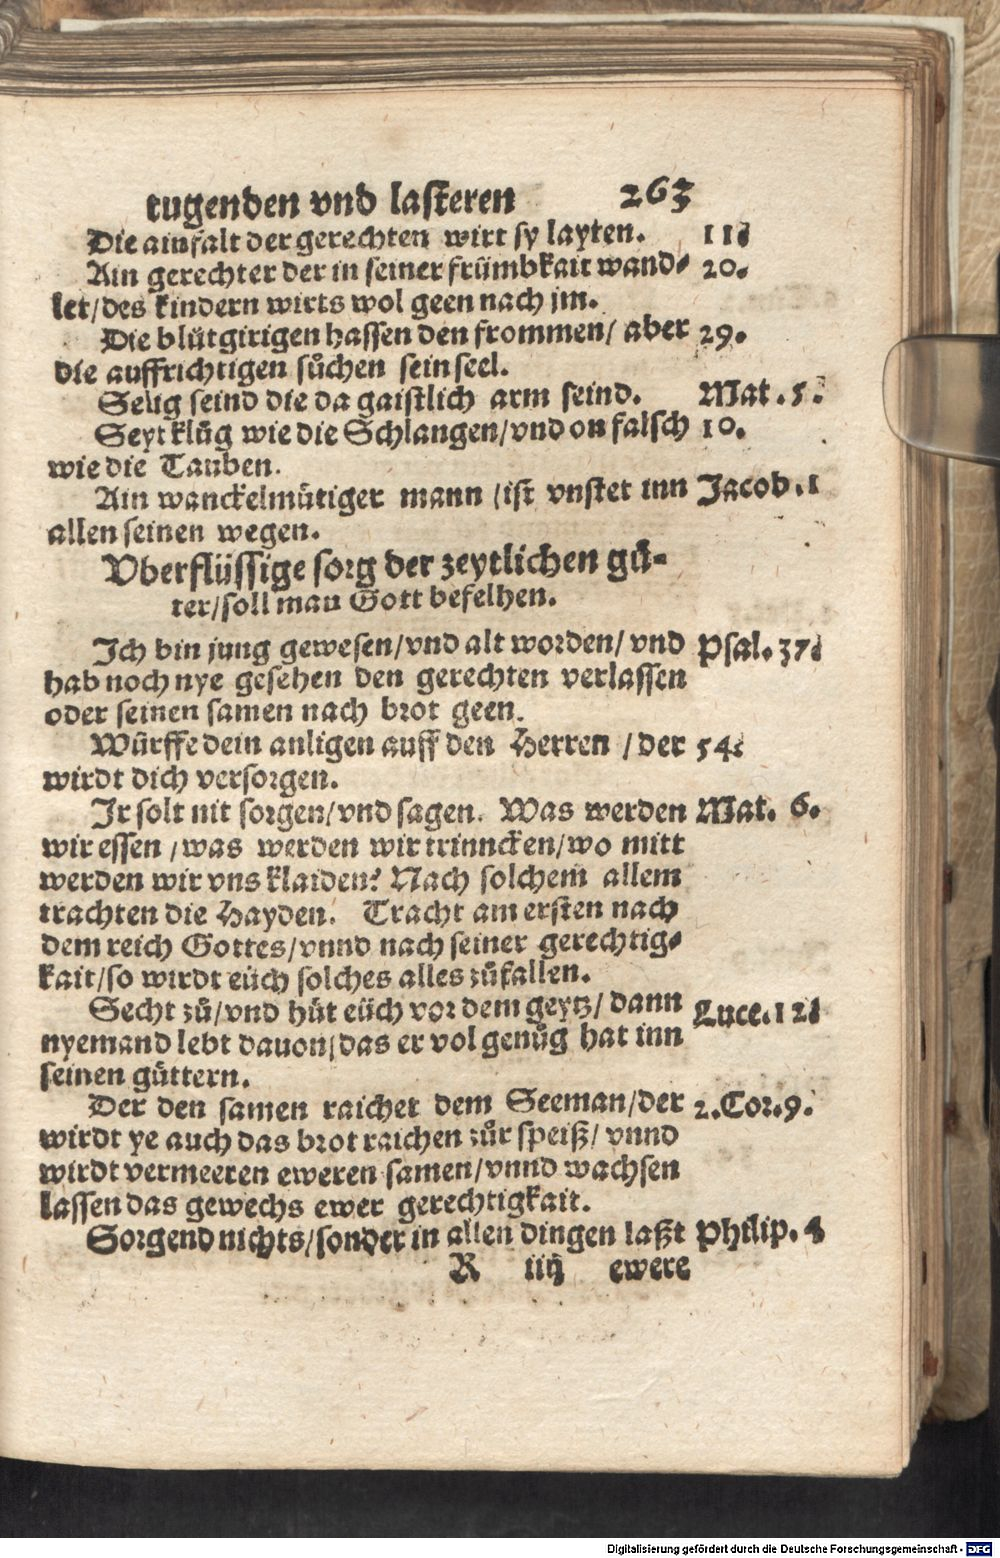 tugenden vnd lasteren 263
Die ainfalt der gerechten wirt sy layten. 11.
Ain gerechter der in seiner frümbkait wand⸗ 20.
let/des kindern wirts wol geen nach jm.
Die blůtgirigen hassen den frommen/ aber 29.
die auffrichtigen sůchen sein seel.
Selig seind die da gaistlich arm seind. Mat. 5.
Seyt klůg wie die Schlangen/vnd on falsch 10.
wie die Tauben.
Ain wanckelmütiger mann /ist vnstet inn Jacob. 1
allen seinen wegen.
Vberflüssige sorg der zeytlichen gü-
ter/soll man Gott befelhen.
Ich bin jung gewesen/vnd alt worden/ vnd Psal. 37.
hab noch nye gesehen den gerechten verlassen
oder seinen samen nach brot geen.
Würffe dein anligen auff den Herren / der 54.
wirdt dich versorgen.
Ir solt nit sorgen/vnd sagen. Was werden Mat. 6.
wir essen /was werden wir trinncken/wo mitt
werden wir vns klaiden? Nach solchem allem
trachten die Hayden. Tracht am ersten nach
dem reich Gottes/vnnd nach seiner gerechtig⸗
kait/so wirdt eüch solches alles zůfallen.
Secht zů/vnd hüt eüch vor dem geytz/ dann Luce. 12.
nyemand lebt dauon/das er vol genůg hat inn
seinen güttern.
Der den samen raichet dem Seeman/der 2.Cor.9.
wirdt ye auch das brot raichen zůr speiß/ vnnd
wirdt vermeeren eweren samen/vnnd wachsen
lassen das gewechs ewer gerechtigkait.
Sorgend nichts/sonder in allen dingen laßt Philip. 4
R iiij ewere
Digitalisierung gefördert durch die Deutsche Forschungsgemeinschaft - DFG